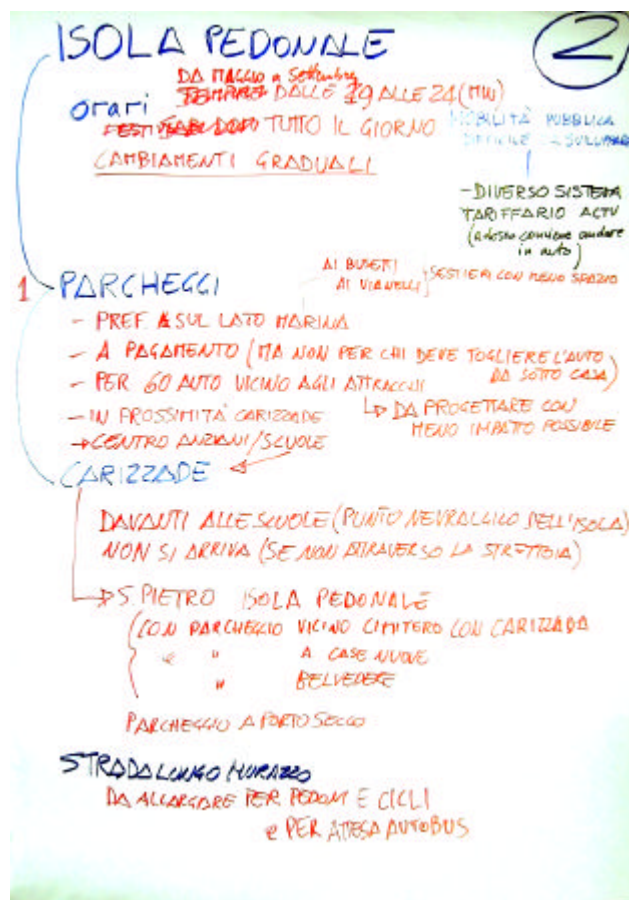 ISOLA PEDONALE
2
DA MAGGIO a Settembre
SEMPRE DALLE 19 ALLE 24 (MIN)
orari
FESTIVI TUTTO IL GIORNO
CAMBIAMENTI GRADUALI
MOBILITÀ PUBBLICA
DIFFICILE
- DIVERSO SISTEMA
TARIFFARIO ACTV
(adesso conviene andare
in auto)
1 PARCHEGGI
AI BUSETTI
AI VIANELLI
SESTIERI CON MENO SPAZIO
- PREF. SUL LATO MARINA
- A PAGAMENTO (MA NON PER CHI DEVE TOGLIERE L'AUTO
DA SOTTO CASA)
- PER 60 AUTO VICINO AGLI ATTRACCHI
→ DA PROGETTARE CON
MENO IMPATTO POSSIBILE
- IN PROSSIMITÀ CARIZZADE
→ CENTRO ANZIANI/SCUOLE
CARIZZADE
DAVANTI ALLE SCUOLE (PUNTO NEVRALGICO DELL'ISOLA)
NON SI ARRIVA (SE NON ATTRAVERSO LA STRETTOIA)
→ S. PIETRO ISOLA PEDONALE
(CON PARCHEGGIO VICINO CIMITERO CON CARIZZADA
e " A CASE NUOVE
" BELVEDERE
PARCHEGGIO A PORTOSECCO
STRADA LUNGO MURAZZO
DA ALLARGARE PER PEDONI E CICLI
e PER ATTESA AUTOBUS